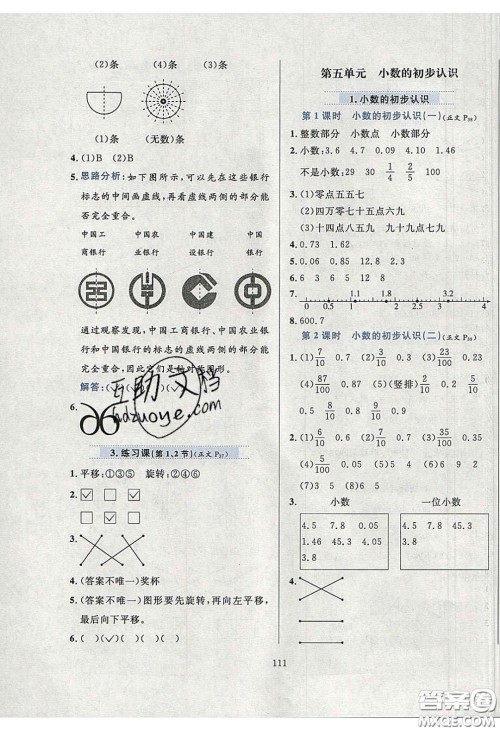 (2)条 (4)条
(1)条 (无数)条
5. (1)B (2)B
5. 思路分析:如下图所示,可以先在这些银行
标志的中间画虚线,再看虚线两侧的部分能
否完全重合。
中国工 中国农 中国建 中国
商银行 业银行 设银行 银行
通过观察发现,中国工商银行、中国农业银行
和中国银行的标志的虚线两侧的部分能
完全重合,
解答:
6.
互助文档
hdzuoye.com
3. 练习课(第1、2节)(正文 P37)
1. 平移:①③⑤ 旋转:②④⑥
2.
3.
4. (答案不唯一)奖杯
5. (答案不唯一)图形要先旋转,再向左平移,
最后向下平移。
6. ( )(✓)(✓)( )
111
第五单元 小数的初步认识
1. 小数的初步认识
第1课时 小数的初步认识(一)
1. 整数部分 小数点 小数部分
2. 小数:3.6 4.7 0.09 4.10 1.46
不是小数:29 30 1/4 4/5 5
3. (1)零点五五七
(2)四万零七十五点六九
(3)十四点八八 九十九点七七
4. 0.73 1.62
5. 0.6 0.35 0.06 12.8 2.3
6. 3 6 5 8
7. 0 1 2 3 4
8. 600.7
第2课时 小数的初步认识(二)
1. (1) 7/10 (2) 3/10 0.3 (3) 7/10 0.7
(4) 87/100 (5) 4/10 (竖排) 2/10 4/10
0.5 8/10 0.9 0.2 0.4 0.8
2. (1) 3/10 0.3 (2) 45/100 0.45
3. 小数 一位小数
4.5 7.8 0.05
1.46 45.3
3.8
4.5 7.8 45.3
3.8
4.
答案圈
MXQE.COM